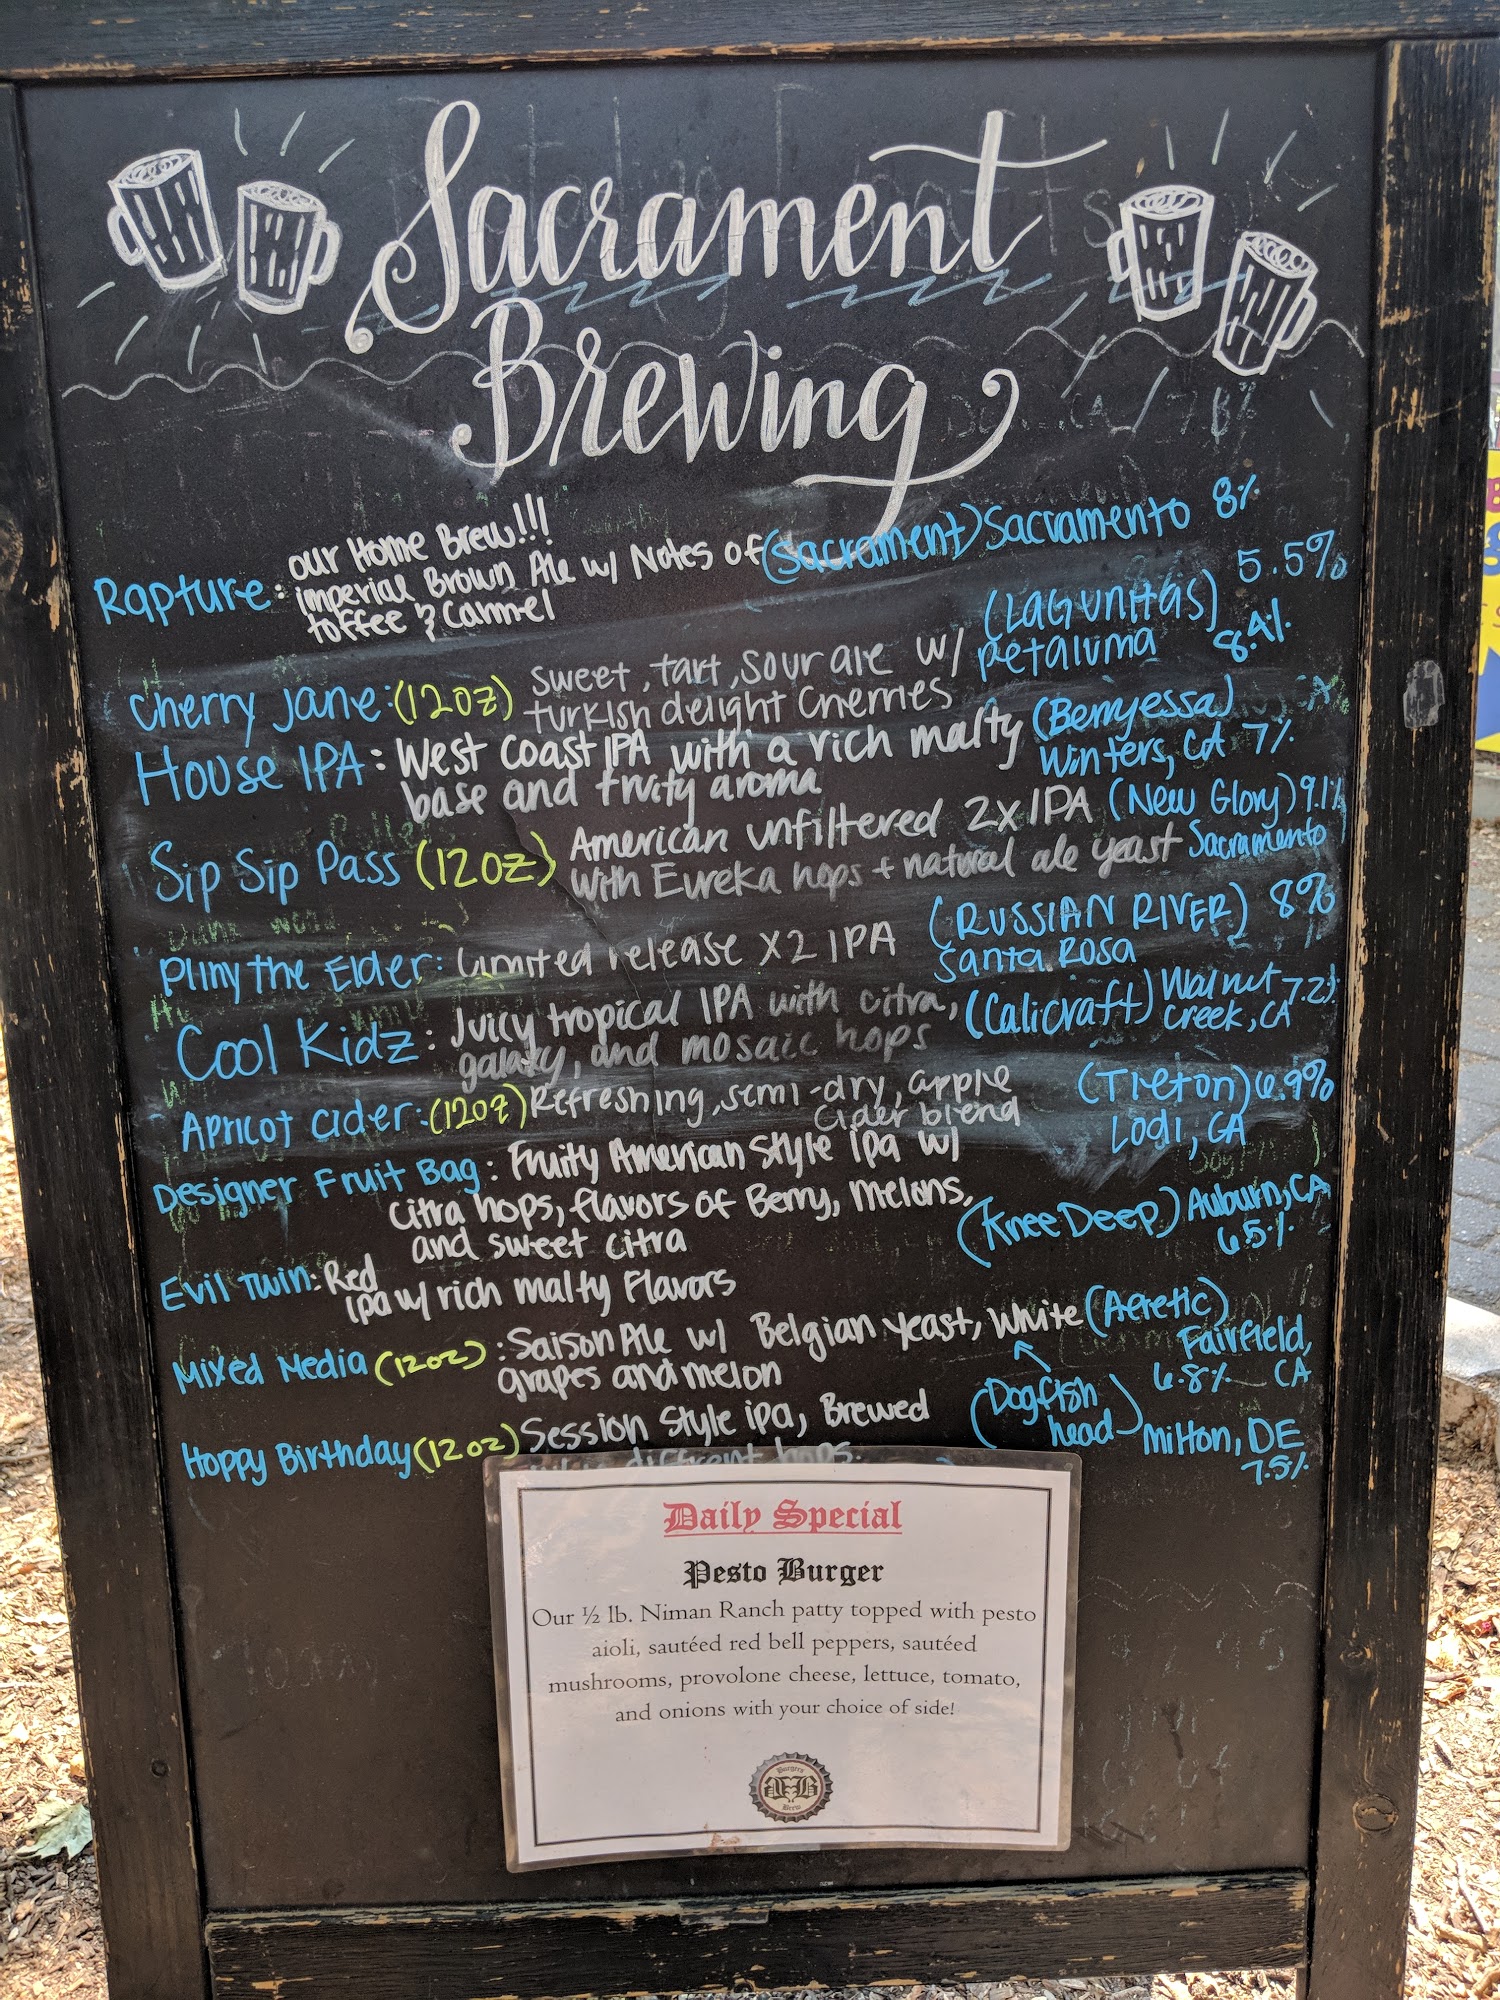 Sacrament
Brewing
Rapture: our Home Brew!!! (Sacrament) Sacramento 8%
imperial Brown Ale w/ Notes of
toffee & Carmel
5.5%
Cherry Jane: (12oz) sweet, tart, sour ale w/ (LAGUNITAS) 8.4%
turkish delight Cherries petaluma
House IPA: West Coast IPA with a rich malty (Berryessa)
base and fruity aroma Winters, CA 7%
Sip Sip Pass (12oz) American unfiltered 2x IPA (New Glory) 9.1%
with Eureka hops + natural ale yeast Sacramento
Pliny the Elder: Limited release x2 IPA (RUSSIAN RIVER) 8%
Santa Rosa
Cool Kidz: Juicy tropical IPA with citra, (Calicraft) Walnut 7.2%
galaxy, and mosaic hops Creek, CA
Apricot cider: (12oz) Refreshing, semi-dry, apple (Tieton) 6.9%
cider blend Lodi, CA
Designer Fruit Bag: Fruity American style ipa w/
citra hops, flavors of Berry, Melons, (Knee Deep) Auburn, CA
and sweet citra 6.5%
Evil Twin: Red
ipa w/ rich malty Flavors
Mixed Media (12oz): Saison Ale w/ Belgian yeast, White (Aeretic)
grapes and melon Fairfield,
6.8% CA
Hoppy Birthday (12oz) Session Style ipa, Brewed (Dogfish
head) Milton, DE
different hops. 7.5%
Daily Special
Pesto Burger
Our ½ lb. Niman Ranch patty topped with pesto
aioli, sautéed red bell peppers, sautéed
mushrooms, provolone cheese, lettuce, tomato,
and onions with your choice of side!
Burgers
Brew